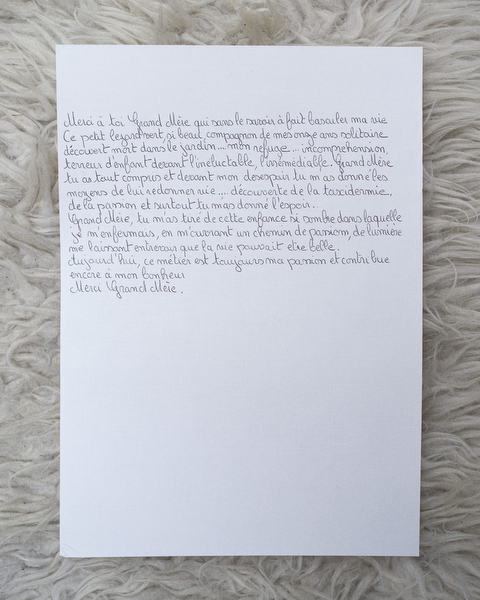 Merci à toi Grand Mère qui sans le savoir à fait basculer ma vie
Ce petit lezard vert, si beau, compagnon de mes onze ans solitaire
découvert mort dans le jardin... mon refuge... incomprehension,
terreur d'enfant devant l'ineluctable, l'irrémédiable. Grand Mère
tu as tout compris et devant mon desespoir tu m'as donné les
moyens de lui redonner vie... découverte de la taxidermie,
de la passion et surtout tu m'as donné l'espoir..
Grand Mère, tu m'as tiré de cette enfance si sombre dans laquelle
je m'enfermais, en m'ouvrant un chemin de passion, de lumière
me laissant entrevoir que la vie pouvait etre belle.
Aujourd'hui, ce métier est toujours ma passion et contribue
encore à mon bonheur
Merci Grand Mère.